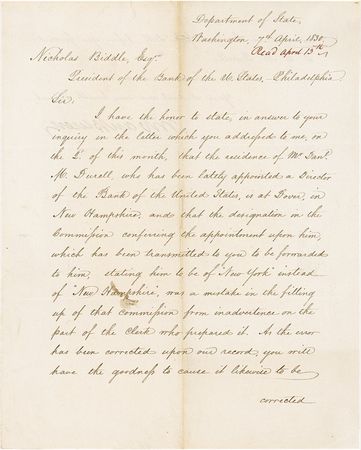 Department of State,
Washington, 7th April, 1830.
Read April 13th
Nicholas Biddle, Esqr.
President of the Bank of the U. States, Philadelphia
Sir,
I have the honor to state, in answer to your
inquiry in the letter which you addressed to me, on
the 2d. of this month, that the residence of Mr. Danl.
M. Durell, who has been lately appointed a Director
of the Bank of the United States, is at Dover, in
New Hampshire, and that the designation in the
Commission conferring the appointment upon him,
which has been transmitted to you to be forwarded
to him, stating him to be of "New York" instead
of "New Hampshire", was a mistake in the fitting
up of that commission from inadvertence on the
part of the Clerk who prepared it. As the error
has been corrected upon our record, you will
have the goodness to cause it likewise to be
corrected